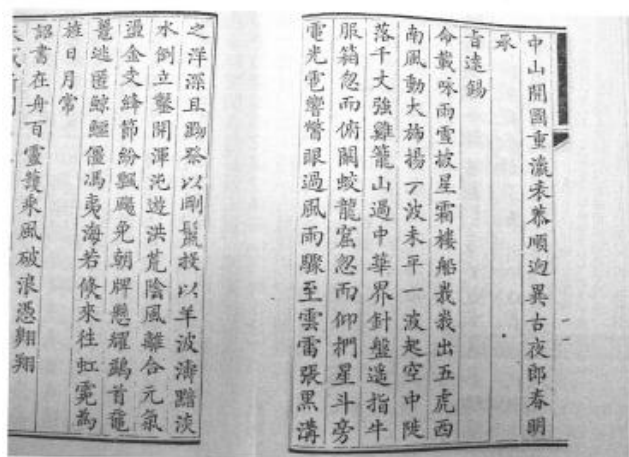 中山開國重瀛來恭順迥異古夜郎春明
承
旨遠錫
命載咏雨雪披星霜樓船峩峩出五虎西
南風動大斾揚一波未平一波起空中陡
落千丈強雞籠山過中華界針盤遙指牛
服箱忽而俯闞蛟龍窟忽而仰捫星斗旁
電光電響瞥眼過風雨驟至雲雷張黑溝
之洋深且黝祭以剛鬣投以羊波濤黯淡
水倒立鑿開渾沌遊洪荒陰風離合元氣
盪金支絳節紛飄颺免朝牌懸耀鷁首黿
鼉逃匿鯨鱷僵馮夷海若倏來往虹霓為
旌日月常
詔書在舟百靈護乘風破浪憑翺翔